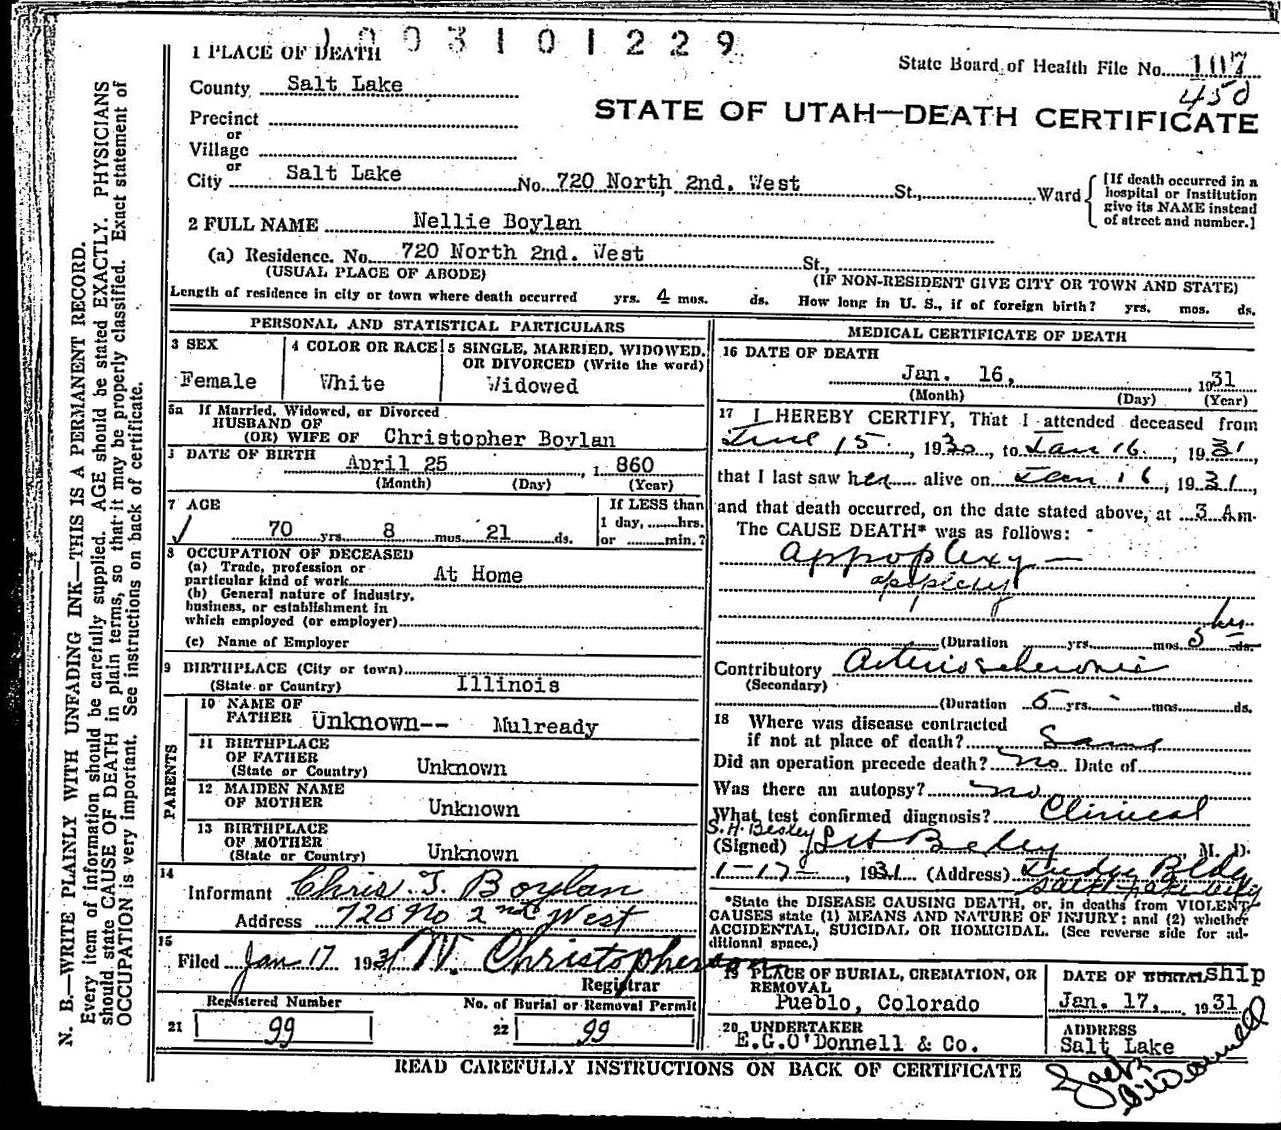 1003101229
1 PLACE OF DEATH
State Board of Health File No. 107
450
County Salt Lake
STATE OF UTAH—DEATH CERTIFICATE
Precinct
or
Village
or
City Salt Lake No. 720 North, 2nd. West St., Ward
[If death occurred in a
hospital or Institution
give its NAME instead
of street and number.]
2 FULL NAME Nellie Boylan
(a) Residence. No. 720 North 2nd. West St.,
(USUAL PLACE OF ABODE) (IF NON-RESIDENT GIVE CITY OR TOWN AND STATE)
Length of residence in city or town where death occurred yrs. 4 mos. ds. How long in U. S., if of foreign birth? yrs. mos. ds.
PERSONAL AND STATISTICAL PARTICULARS
3 SEX
Female
4 COLOR OR RACE
White
5 SINGLE, MARRIED, WIDOWED,
OR DIVORCED (Write the word)
Widowed
5a If Married, Widowed, or Divorced
HUSBAND OF
(OR) WIFE OF Christopher Boylan
DATE OF BIRTH
April 25, 1860
(Month) (Day) (Year)
7 AGE
70 yrs. 8 mos. 21 ds.
If LESS than
1 day, hrs.
or min.?
8 OCCUPATION OF DECEASED
(a) Trade, profession or
particular kind of work At Home
(b) General nature of industry,
business, or establishment in
which employed (or employer)
(c) Name of Employer
9 BIRTHPLACE (City or town)
(State or Country) Illinois
PARENTS
10 NAME OF
FATHER Unknown-- Mulready
11 BIRTHPLACE
OF FATHER
(State or Country) Unknown
12 MAIDEN NAME
OF MOTHER Unknown
13 BIRTHPLACE
OF MOTHER
(State or Country) Unknown
14
Informant Chris. T. Boylan
Address 720 No 2nd West
15
Filed Jan 17 1931 W. Christopherson
Registrar
Registered Number
21 99
No. of Burial or Removal Permit
22 99
MEDICAL CERTIFICATE OF DEATH
16 DATE OF DEATH
Jan. 16, 1931
(Month) (Day) (Year)
17 I HEREBY CERTIFY, That I attended deceased from
June 15, 1930, to Jan 16, 1931,
that I last saw her alive on Jan 16, 1931,
and that death occurred, on the date stated above, at 3 Am.
The CAUSE DEATH* was as follows:
Appoplexy—
apoplexy
hrs.
(Duration yrs. mos. 5 ds.
Contributory Arteriosclerosis
(Secondary)
(Duration 5 yrs. mos. ds.
18 Where was disease contracted
if not at place of death? Same
Did an operation precede death? no Date of
Was there an autopsy? no
What test confirmed diagnosis? Clinical
S.H. Besley
(Signed) M. D.
1-17-, 1931 (Address) Judge Bldg
Salt Lake City
*State the DISEASE CAUSING DEATH, or, in deaths from VIOLENT
CAUSES state (1) MEANS AND NATURE OF INJURY; and (2) whether
ACCIDENTAL, SUICIDAL OR HOMICIDAL. (See reverse side for ad-
ditional space.)
19 PLACE OF BURIAL, CREMATION, OR
REMOVAL
Pueblo, Colorado
DATE OF BURIAL ship
Jan. 17, 1931
20 UNDERTAKER
E.G.O'Donnell & Co.
ADDRESS
Salt Lake
Jack O'Donnell
READ CAREFULLY INSTRUCTIONS ON BACK OF CERTIFICATE
N. B.—WRITE PLAINLY WITH UNFADING INK—THIS IS A PERMANENT RECORD.
Every item of information should be carefully supplied. AGE should be stated EXACTLY. PHYSICIANS
should state CAUSE OF DEATH in plain terms, so that it may be properly classified. Exact statement of
OCCUPATION is very important. See instructions on back of certificate.